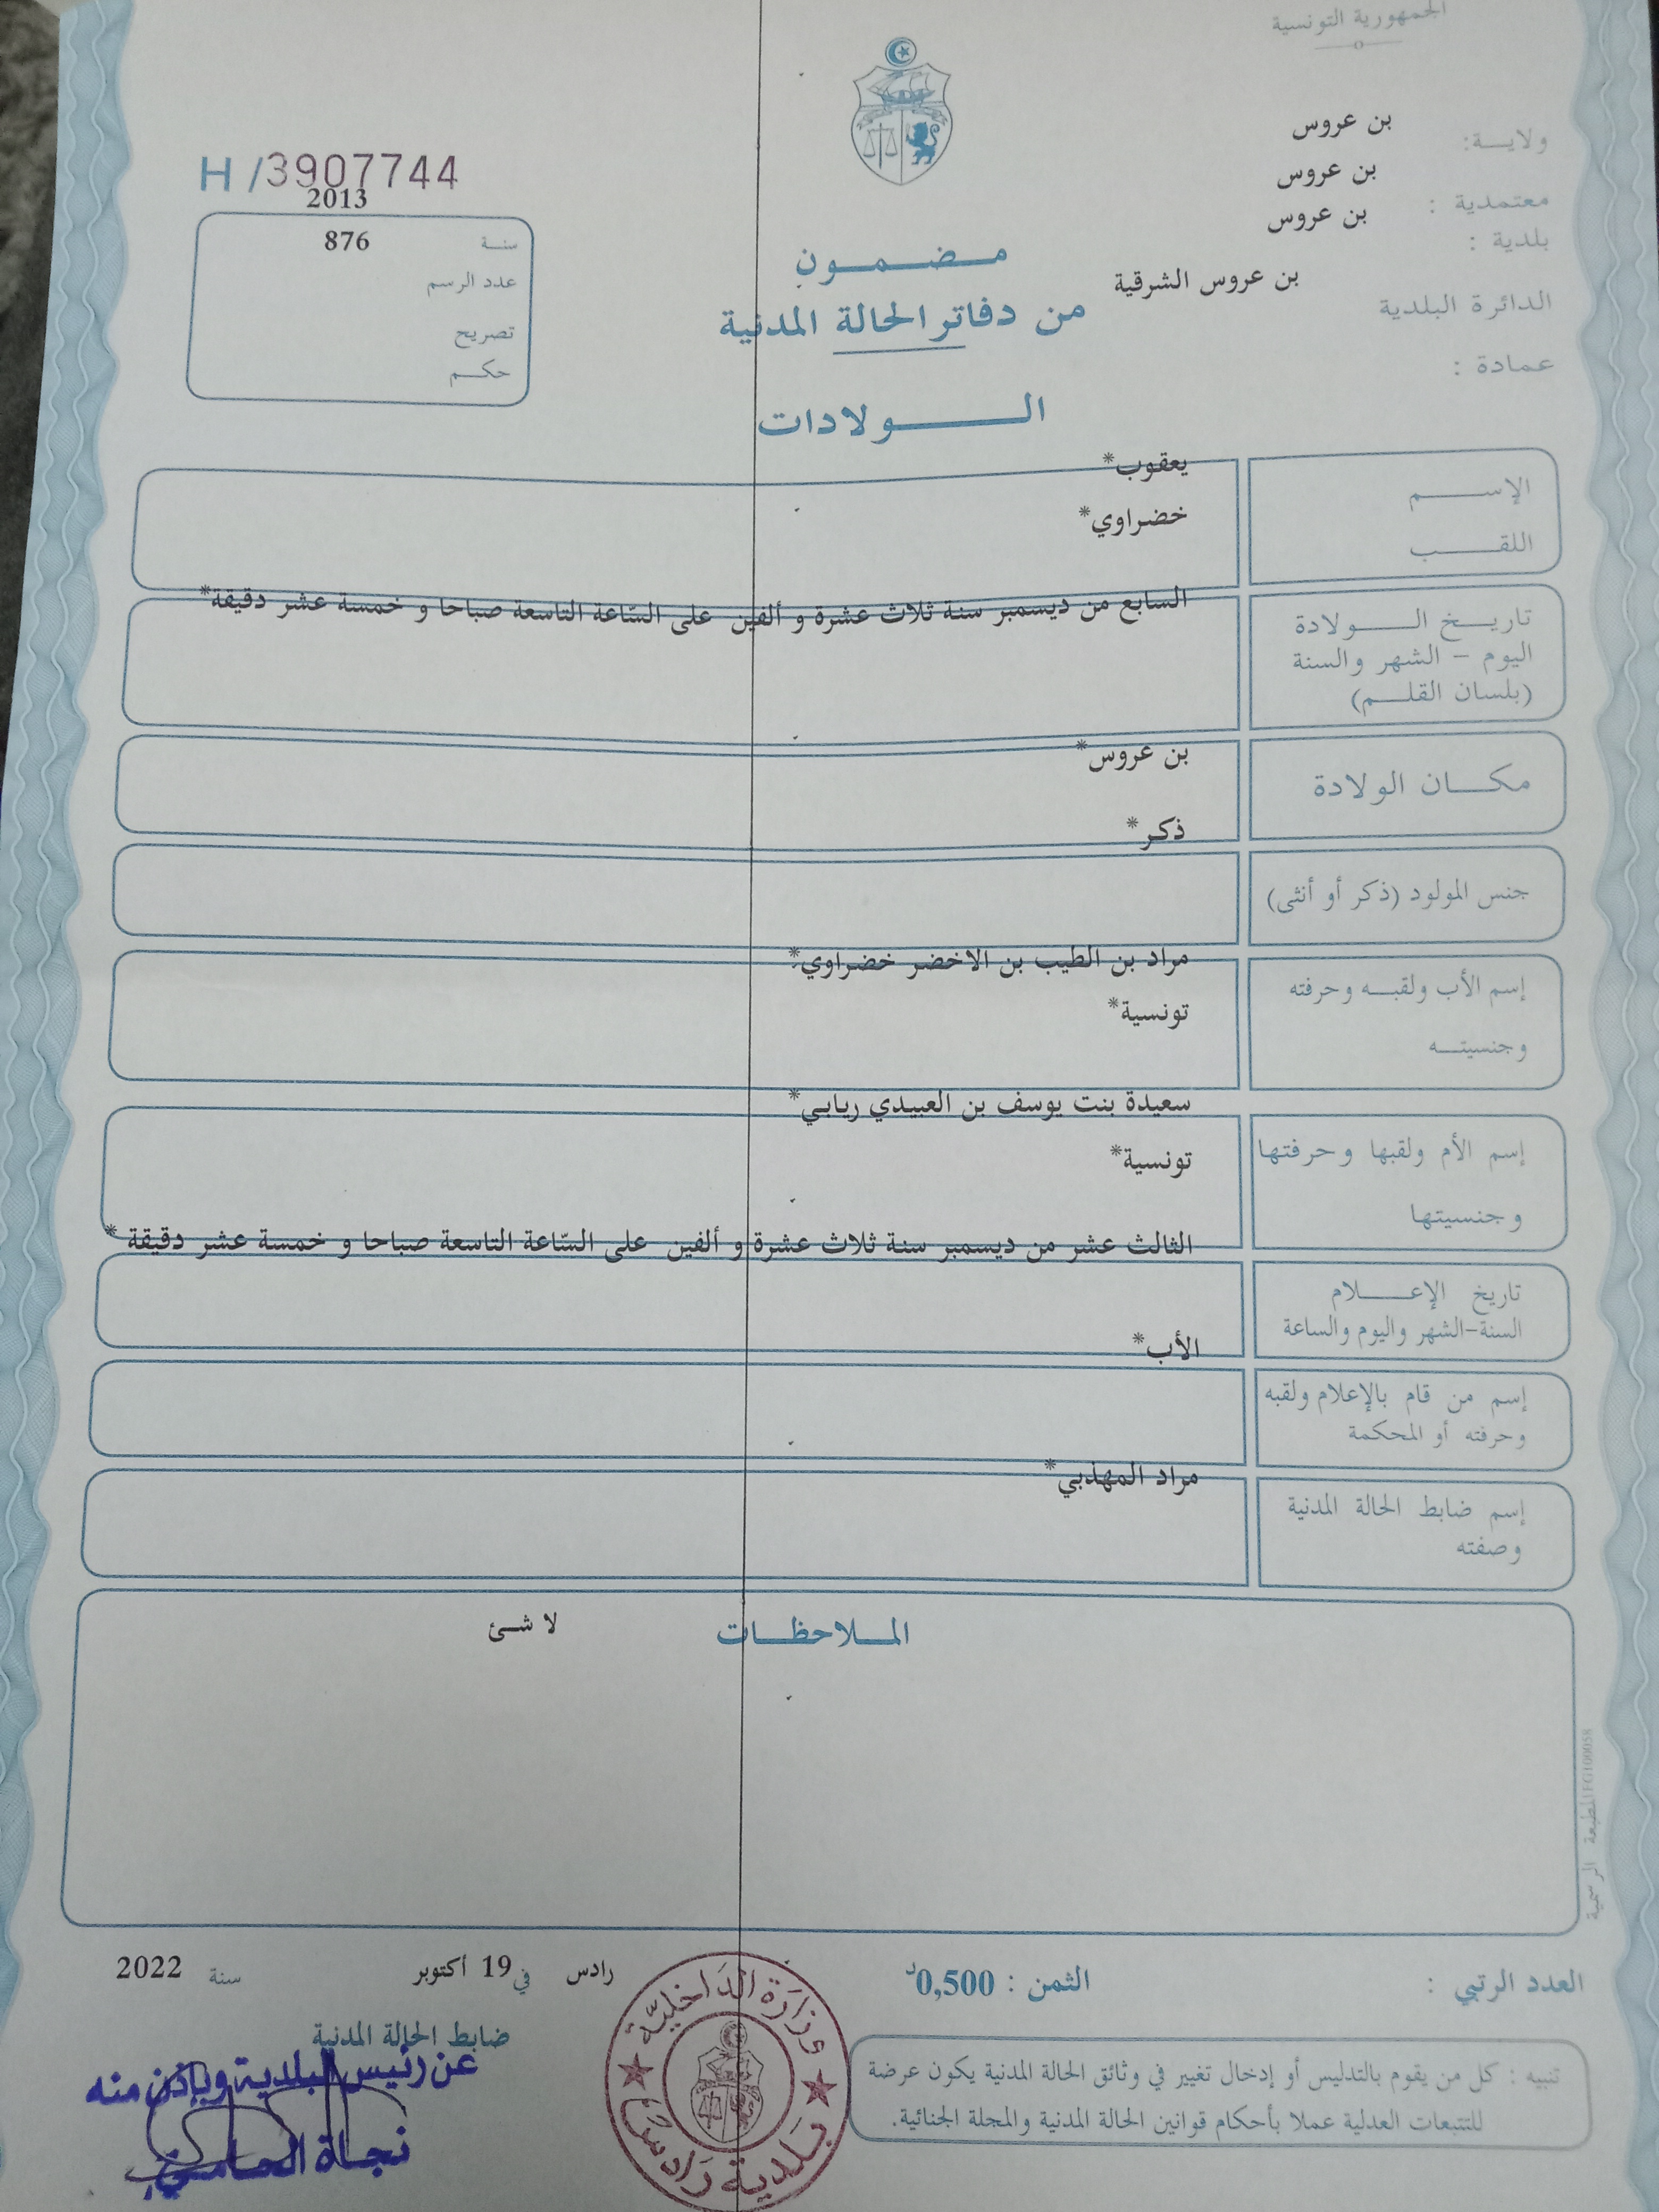 الجمهورية التونسية
ولايـــة: بن عروس
معتمدية : بن عروس
بلدية : بن عروس
الدائرة البلدية بن عروس الشرقية
عمادة :
مـــضـــمـــون
من دفاتر الحالة المدنية
الـــولادات
H/3907744
2013
سنـــة 876
عدد الرسم
تصريح
حكـــم
الإســـم يعقوب*
اللقـــب خضراوي*
تاريـــخ الـــولادة السابع من ديسمبر سنة ثلاث عشرة و ألفين على السّاعة التاسعة صباحا و خمسة عشر دقيقة*
اليوم – الشهر والسنة
(بلسان القلـــم)
مكـــان الولادة بن عروس*
ذكر*
جنس المولود (ذكر أو أنثى)
إسم الأب ولقبـــه وحرفته مراد بن الطيب بن الاخضر خضراوي*
وجنسيتـــه تونسية*
سعيدة بنت يوسف بن العبيدي ريابي*
إسم الأم ولقبها وحرفتها
تونسية*
وجنسيتها
الثالث عشر من ديسمبر سنة ثلاث عشرة و ألفين على السّاعة التاسعة صباحا و خمسة عشر دقيقة *
تاريخ الإعـــلام
السنة-الشهر واليوم والساعة
الأب*
إسم من قام بالإعلام ولقبه
وحرفته أو المحكمة
مراد المهذبي*
إسم ضابط الحالة المدنية
وصفته
المـــلاحظـــات لا شئ
المطبعة الرسمية
العدد الرتبي :
الثمن : 0,500د
رادس في 19 أكتوبر سنة 2022
ضابط الحالة المدنية
عن رئيس البلدية وبإذن منه
نجاة
وزارة الداخلية
بلدية رادس
تنبيه : كل من يقوم بالتدليس أو إدخال تغيير في وثائق الحالة المدنية يكون عرضة
للتتبعات العدلية عملا بأحكام قوانين الحالة المدنية والمجلة الجنائية.